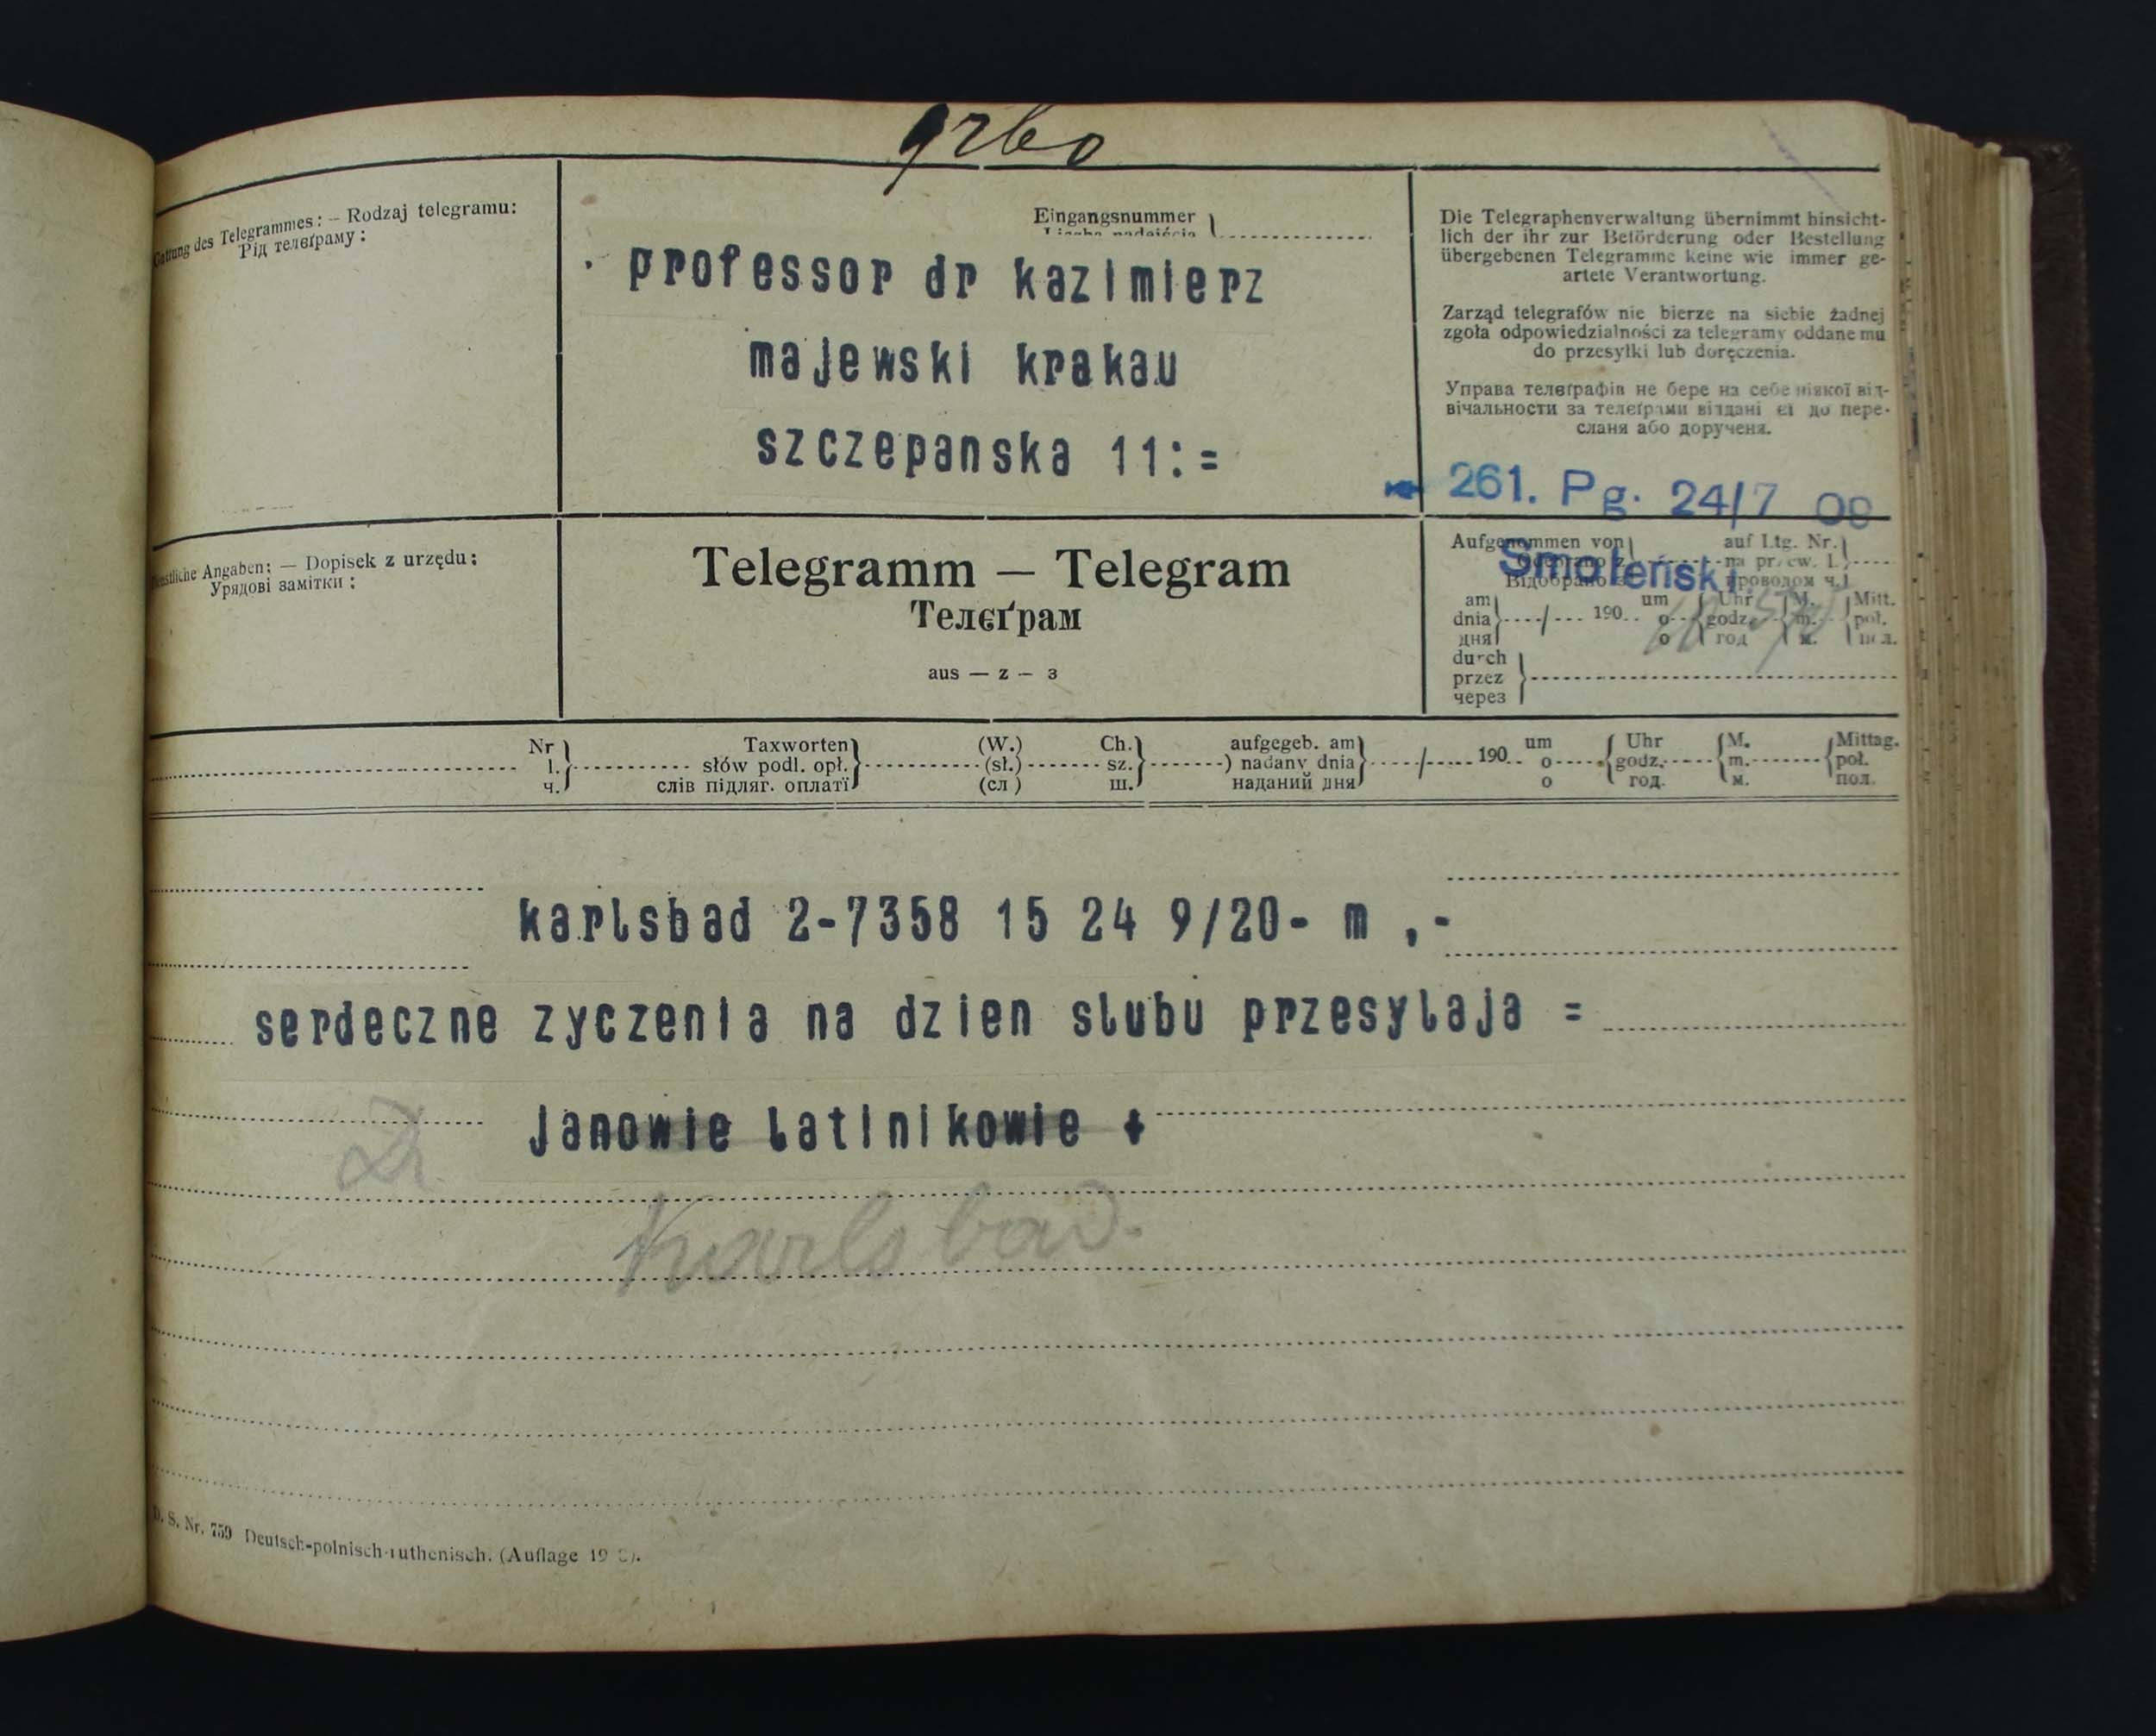 Gattung des Telegrammes: — Rodzaj telegramu:
Рід телєґраму:
Eingangsnummer
professor dr kazimierz
majewski krakau
szczepanska 11:=
Die Telegraphenverwaltung übernimmt hinsicht-
lich der ihr zur Beförderung oder Bestellung
übergebenen Telegramme keine wie immer ge-
artete Verantwortung.
Zarząd telegrafów nie bierze na siebie żadnej
zgoła odpowiedzialności za telegramy oddane mu
do przesyłki lub doręczenia.
Управа телєґрафів не бере на себе ніякої від-
вічальности за телєґрами віддані єї до пере-
сланя або дорученя.
261. Pg. 24/7 09
Smoleński
Angaben: — Dopisek z urzędu:
Урядові замітки:
Telegramm — Telegram
Телєґрам
aus — z — з
Aufgenommen von auf Ltg. Nr.
Odebrano z na przew. l.
Відобрано з проводом ч.
am um Uhr M. Mitt.
dnia / 190 o godz. m. poł.
дня о год м. пол.
durch
przez
через
Nr Taxworten (W.) Ch. aufgegeb. am um Uhr M. Mittag.
l. słów podl. opł. (sł.) sz. ) nadany dnia / 190 o godz. m. poł.
ч. слів підляг. оплатї (сл) ш. наданий дня о год. м. пол.
karlsbad 2-7358 15 24 9/20- m ,-
serdeczne zyczenia na dzien slubu przesylaja =
janowie latinikowie +
Karlsbad.
D. S. Nr. 759 Deutsch-polnisch-ruthenisch. (Auflage 19